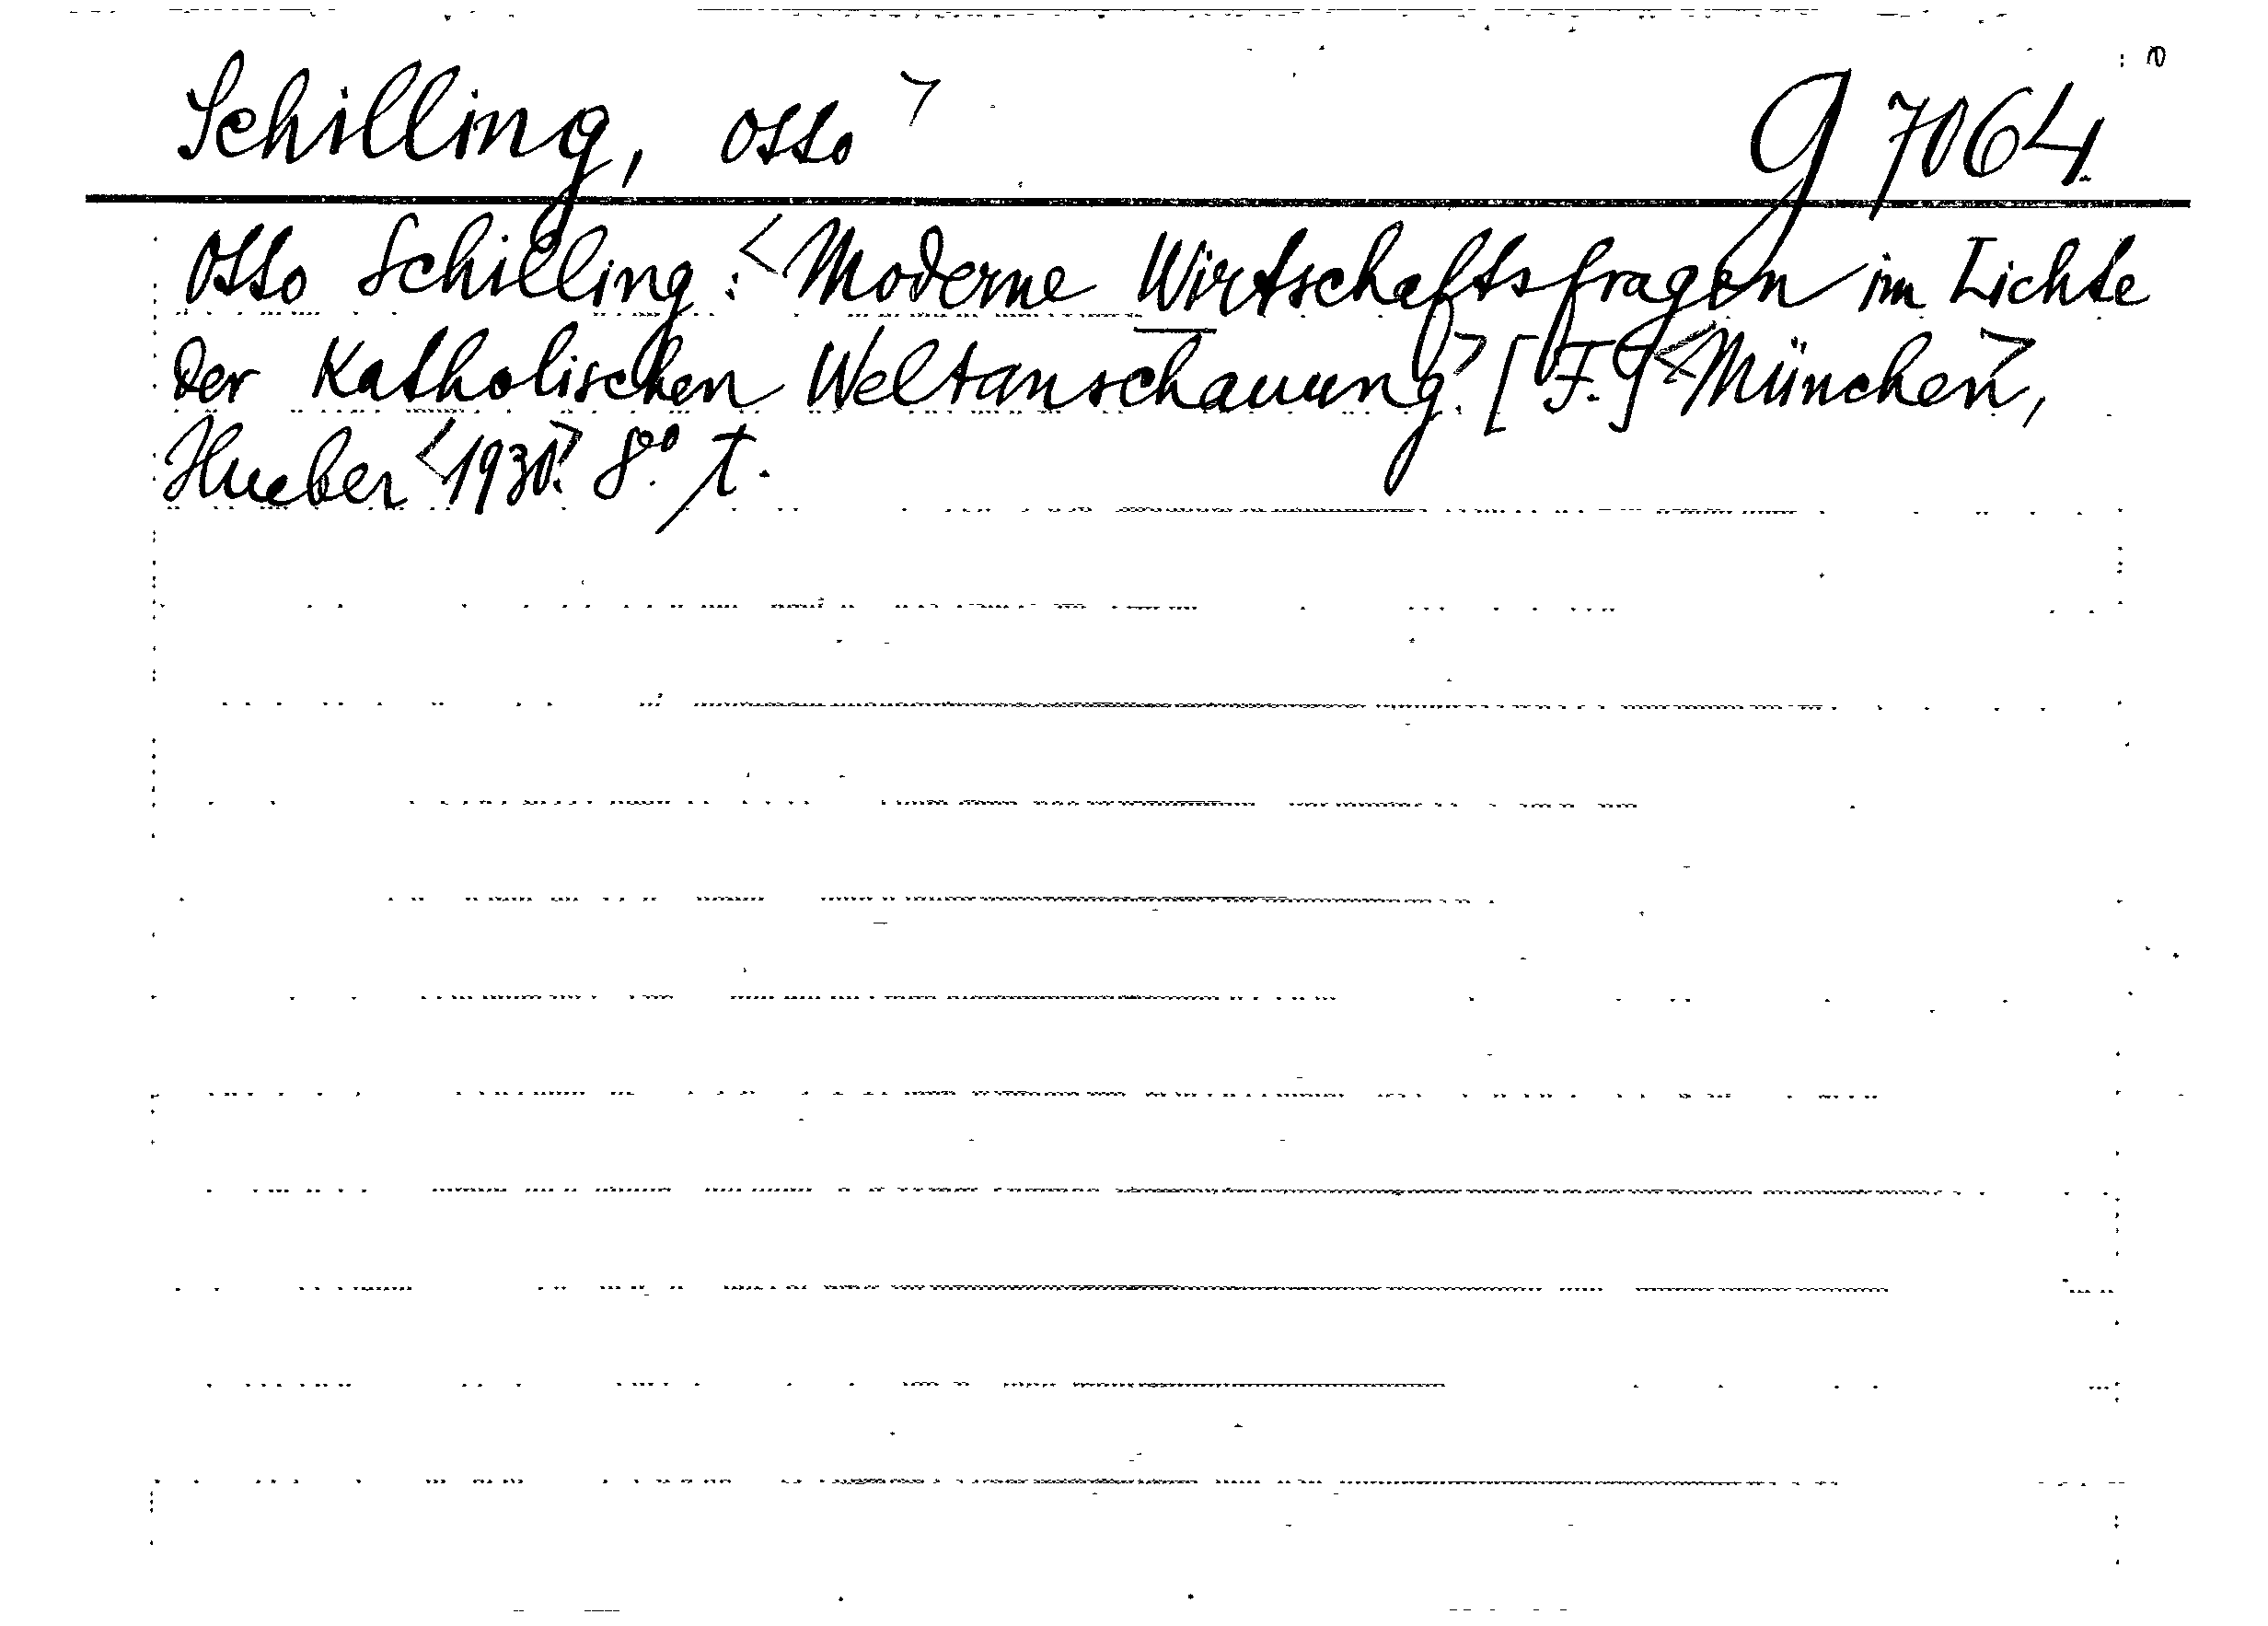 Schilling, Otto> g 7064.
Otto Schilling: <Moderne Wirtschaftsfragen im Lichte
der Katholischen Weltanschauung.> [F.] <München>,
Hueber <1930>. 8°. T.